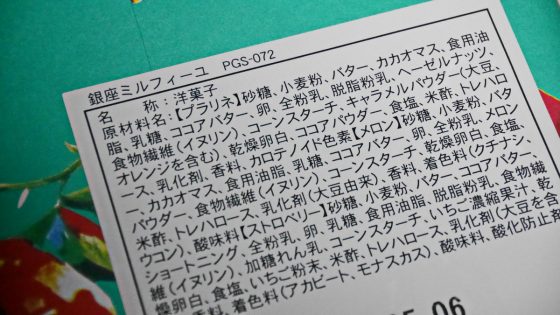 銀座ミルフィーユ PGS-072
名 称:洋菓子
原材料名:【プラリネ】砂糖、小麦粉、バター、カカオマス、食用油
脂、乳糖、ココアバター、卵、全粉乳、脱脂粉乳、ヘーゼルナッツ、
食物繊維(イヌリン)、コーンスターチ、キャラメルパウダー(大豆、
オレンジを含む)、乾燥卵白、ココアパウダー、食塩、米酢、トレハロ
ース、乳化剤、香料、カロテノイド色素【メロン】砂糖、小麦粉、バタ
ー、カカオマス、食用油脂、乳糖、ココアバター、卵、全粉乳、メロン
パウダー、食物繊維(イヌリン)、コーンスターチ、乾燥卵白、食塩、
米酢、トレハロース、乳化剤(大豆由来)、香料、着色料(クチナシ、
ウコン)、酸味料【ストロベリー】砂糖、小麦粉、バター、ココアバター、
ショートニング、全粉乳、卵、乳糖、食用油脂、脱脂粉乳、食物繊
維(イヌリン)、加糖れん乳、コーンスターチ、いちご濃縮果汁、乾
燥卵白、食塩、いちご粉末、米酢、トレハロース、乳化剤(大豆を含
、香料、着色料(アカビート、モナスカス)、酸味料、酸化防止
06